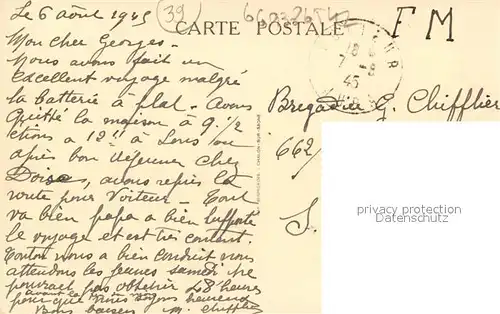 Le 6 août 1945
(39)
CARTE POSTALE
F M
18
7 - 8
45
Mon cher Georges -
Nous avons fait un
excellent voyage malgré
la batterie à plat - Avons
quitté la maison à 9. 1/2
étions à 12h à Lons où
après bon déjeuner chez
avons repris la
route pour Voiteur - Tout
va bien papa a bien supporté
le voyage et est très content.
Tonton nous a bien conduit nous
attendons les jeunes samedi
pourrait pas obtenir 48 heures
pour que nous soyons heureux
Bons baisers M. Chifflier
Brigadier G. Chifflier
662/
S.
privacy protection